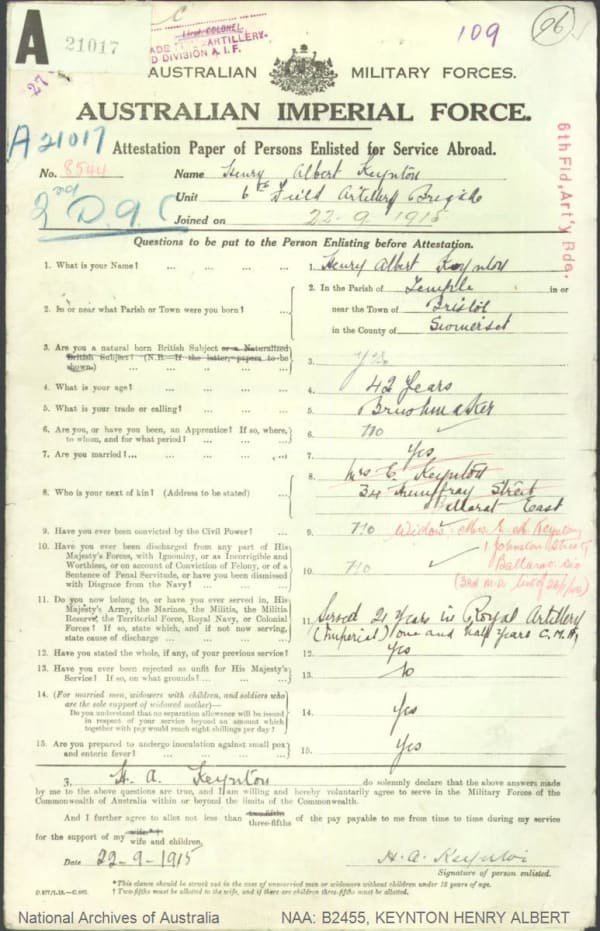 A 21017
C
Lieut. COLONEL.
ADE ARTILLERY.
D DIVISION A.I.F.
109
96
27
AUSTRALIAN MILITARY FORCES.
AUSTRALIAN IMPERIAL FORCE.
A 21017
Attestation Paper of Persons Enlisted for Service Abroad.
No. 8544 Name Henry Albert Keynton
Unit 6th Field Artillery Brigade
2nd D.A.C
Joined on 22-9-1915
6th Fld, Art'y Bde.
Questions to be put to the Person Enlisting before Attestation.
1. What is your Name? ... ... ... ... 1. Henry Albert Keynton
2. In or near what Parish or Town were you born? ... 2. In the Parish of Temple in or
near the Town of Bristol
in the County of Somerset
3. Are you a natural born British Subject or a Naturalized
British Subject? (N.B. If the latter, papers to be
shown.) ... ... ... ... 3. Yes
4. What is your age? ... ... ... ... 4. 42 Years
5. What is your trade or calling? ... ... ... 5. Brushmaker
6. Are you, or have you been, an Apprentice? If so, where,
to whom, and for what period? ... ... ... 6. No
7. Are you married? ... ... ... ... 7. Yes
8. Who is your next of kin? (Address to be stated) ... 8. Mrs E. Keynton
34 Humffray Street
Ballarat East
9. Have you ever been convicted by the Civil Power? ... 9. No
Widow Mrs. E. A. Keynton,
1 Johnston Street,
Ballarat
10. Have you ever been discharged from any part of His
Majesty's Forces, with Ignominy, or as Incorrigible and
Worthless, or on account of Conviction of Felony, or of a
Sentence of Penal Servitude, or have you been dismissed
with Disgrace from the Navy? ... ... ... 10. No
(3rd M.D. list of
11. Do you now belong to, or have you ever served in, His
Majesty's Army, the Marines, the Militia, the Militia
Reserve, the Territorial Force, Royal Navy, or Colonial
Forces? If so, state which, and if not now serving,
state cause of discharge ... ... ... 11. Served 21 Years in Royal Artillery
(Imperial) one and half years C.M.F.
12. Have you stated the whole, if any, of your previous service? 12. Yes
13. Have you ever been rejected as unfit for His Majesty's
Service? If so, on what grounds? ... ... 13. No
14. (For married men, widowers with children, and soldiers who
are the sole support of widowed mother)—
Do you understand that no separation allowance will be issued
in respect of your service beyond an amount which
together with pay would reach eight shillings per day? 14. Yes
15. Are you prepared to undergo inoculation against small pox
and enteric fever? ... ... ... ... 15. Yes
I, H. A. Keynton do solemnly declare that the above answers made
by me to the above questions are true, and I am willing and hereby voluntarily agree to serve in the Military Forces of the
Commonwealth of Australia within or beyond the limits of the Commonwealth.
And I further agree to allot not less than two-fifths
three-fifths of the pay payable to me from time to time during my service
for the support of my wife*†
wife and children.
Date 22-9-1915 H. A. Keynton
Signature of person enlisted.
*This clause should be struck out in the case of unmarried men or widowers without children under 18 years of age.
† Two-fifths must be allotted to the wife, and if there are children three-fifths must be allotted.
National Archives of Australia NAA: B2455, KEYNTON HENRY ALBERT